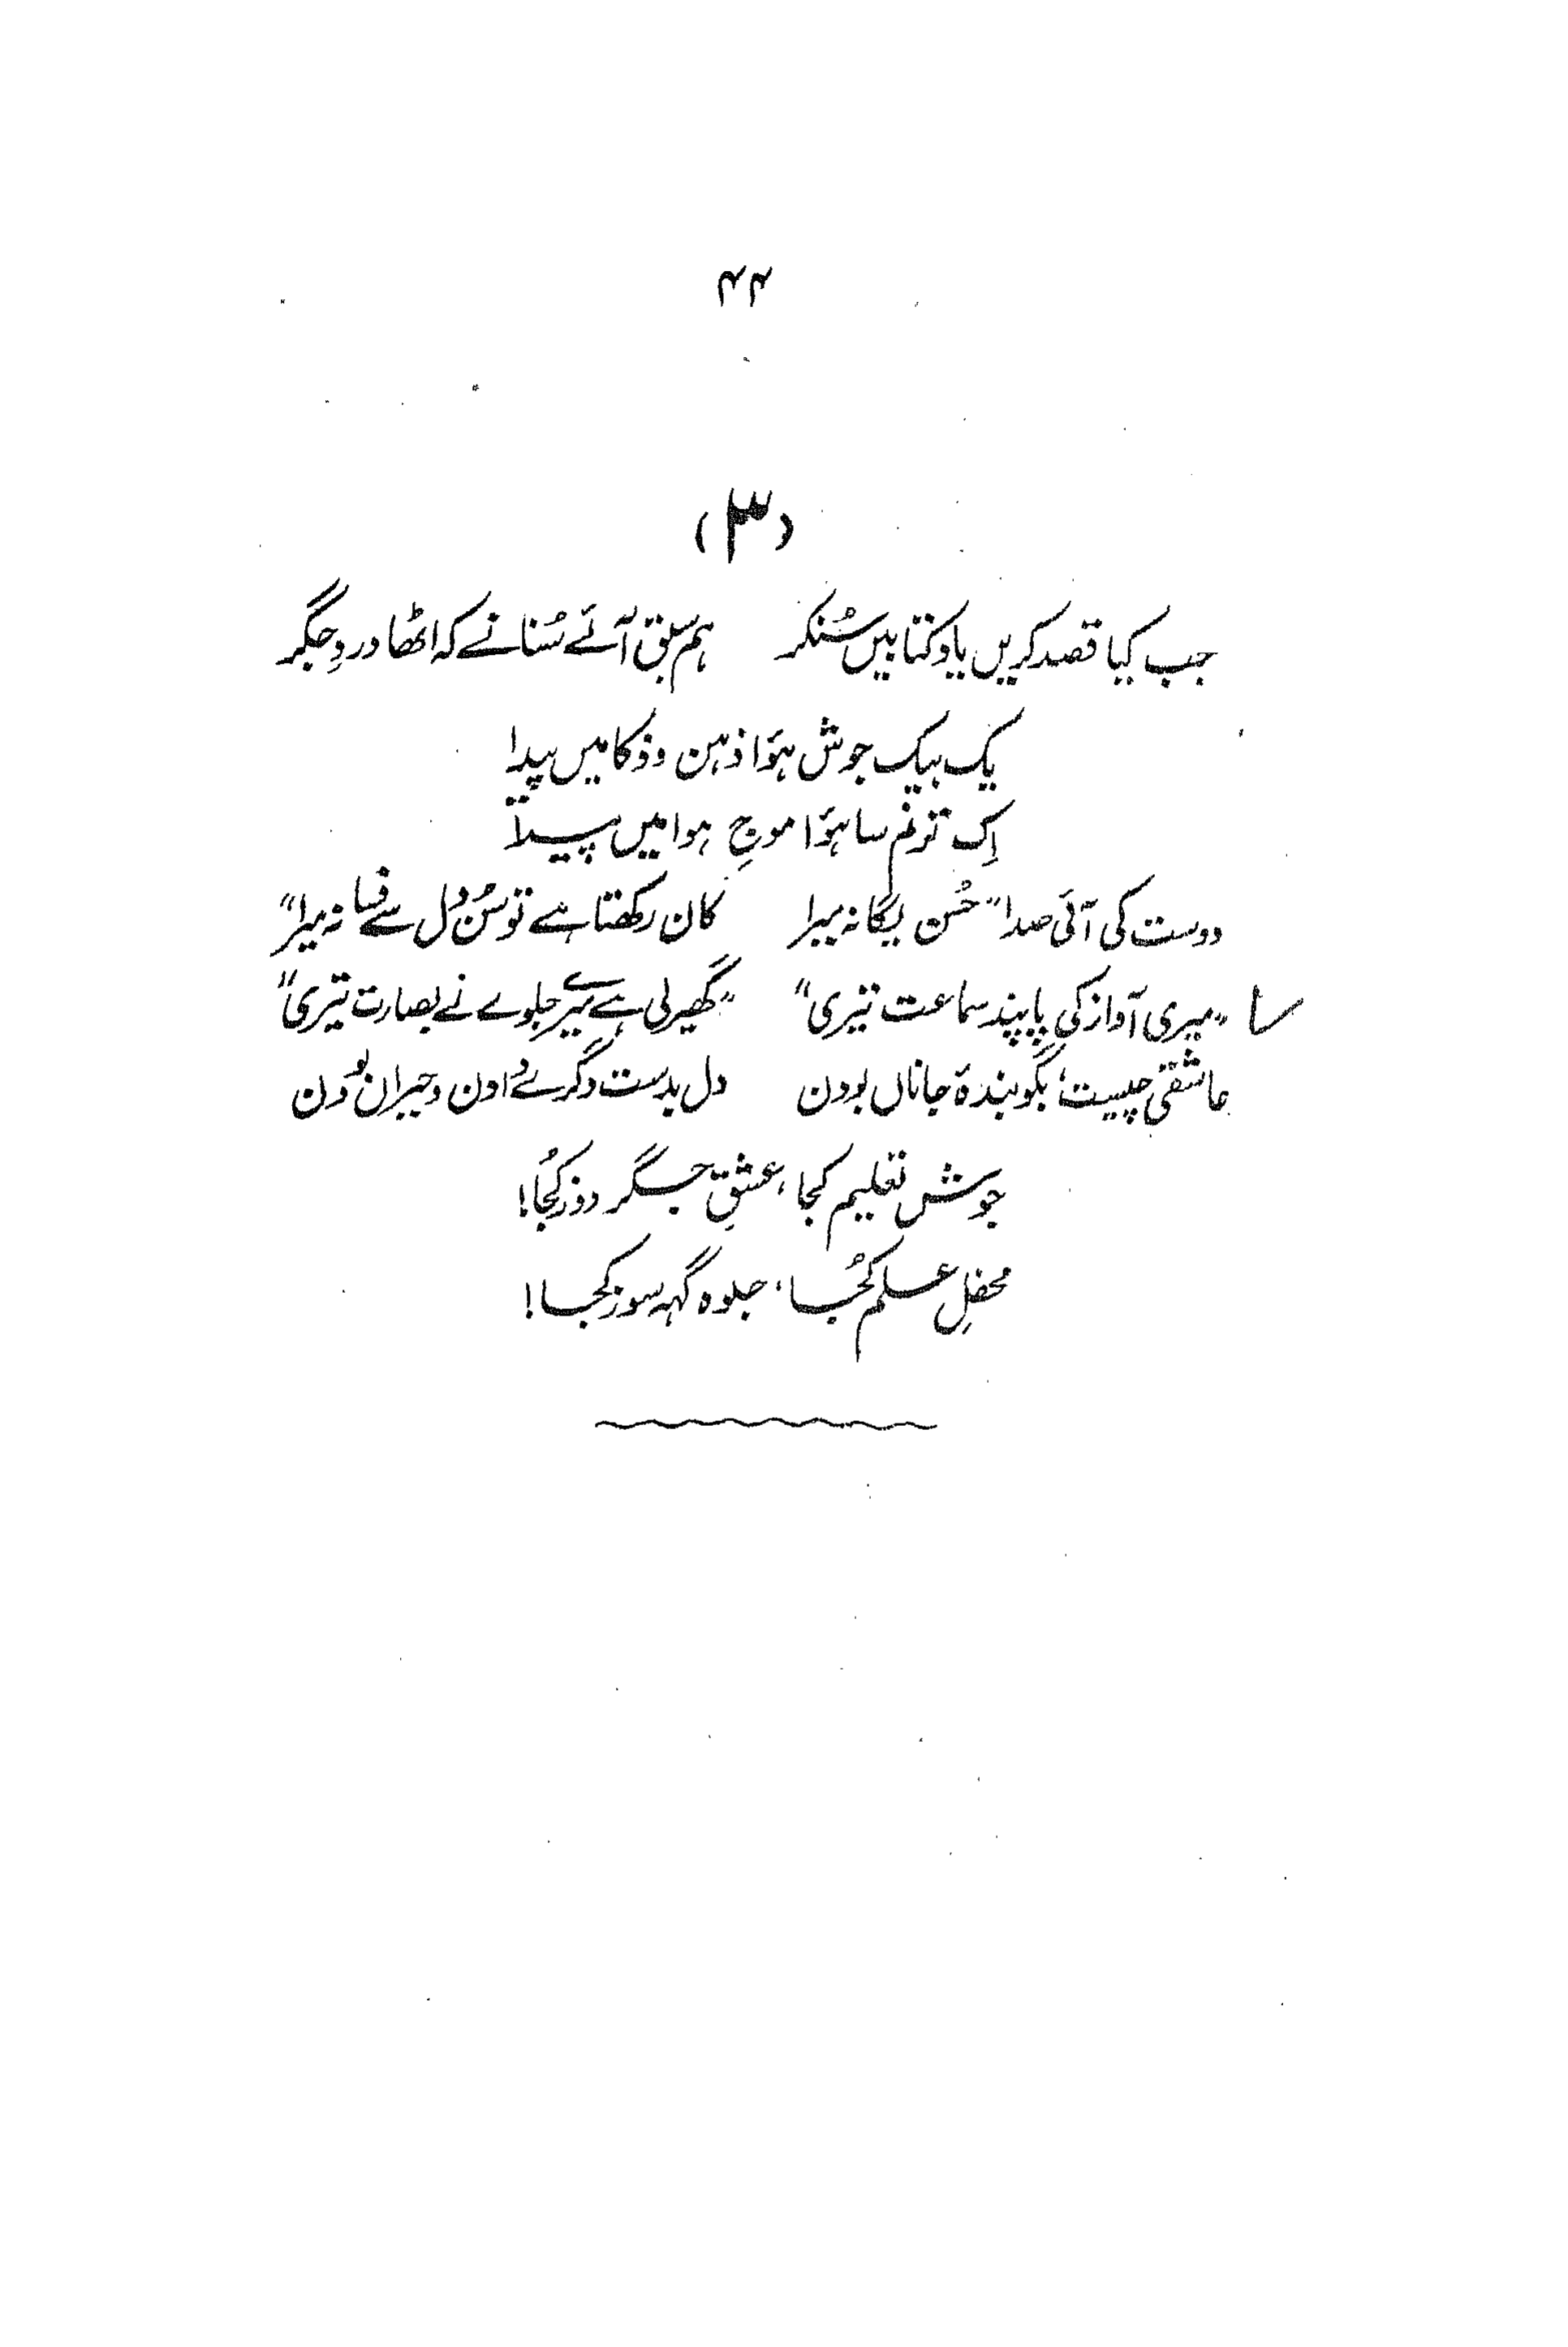 ۴۴
(۳)
جب کیا قصد کریں یاد کتابیں سُنکر ہم سبق آئے سُنانے کہ اٹھا دردِ جگر
یک بیک جوش ہؤا ذہن و ذکا میں پیدا
اِک ترنم سا ہؤا موجِ ہوا میں پیدا
دوست کی آئی صدا "حُسن یگانہ میرا کان رکھتا ہے تو سُن دل سے فسانہ میرا"
"میری آواز کی پاپند سماعت تیری" "گھیر لی ہے میرے جلوے نے بصارت تیری"
عاشقی چیست؛ بگو بندۂ جاناں بودن دل بدست دگرے دادن و حیران بُودن
جوشِ تعلیم کجا، عشقِ جگر دوز کُجا!
محفلِ علم کُجا، جلوہ گہہ سوز کجا!